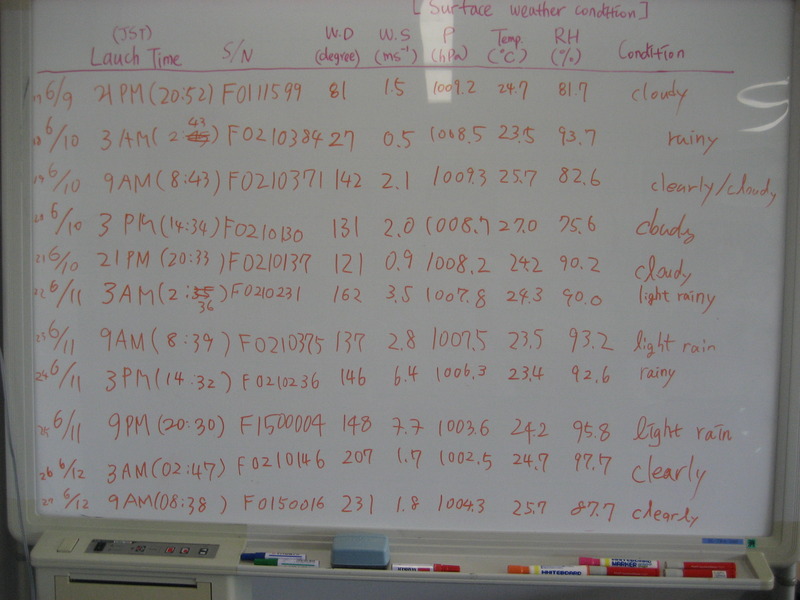 [Surface weather condition]
(JST) Lauch Time S/N W.D (degree) W.S (ms⁻¹) P (hPa) Temp. (°C) RH (%) Condition
6/9 21PM(20:52) F0111599 81 1.5 1009.2 24.7 81.7 cloudy
6/10 3AM(2:43) F0210384 27 0.5 1008.5 23.5 93.7 rainy
6/10 9AM(8:43) F0210371 142 2.1 1009.3 25.7 82.6 clearly/cloudy
20 6/10 3PM(14:34) F0210130 131 2.0 1008.7 27.0 75.6 cloudy
21 6/10 21PM(20:33) F0210137 121 0.9 1008.2 24.2 90.2 cloudy
22 6/11 3AM(2:36) F0210231 162 3.5 1007.8 24.3 90.0 light rainy
23 6/11 9AM(8:39) F0210375 137 2.8 1007.5 23.5 93.2 light rain
24 6/11 3PM(14:32) F0210236 146 6.4 1006.3 23.4 92.6 rainy
25 6/11 9PM(20:30) F1500004 148 7.7 1003.6 24.2 95.8 light rain
26 6/12 3AM(02:47) F0210146 207 1.7 1002.5 24.7 97.7 clearly
27 6/12 9AM(08:38) F0150016 231 1.8 1004.3 25.7 87.7 clearly
WHITEBOARD
WHITEBOARD MARKER